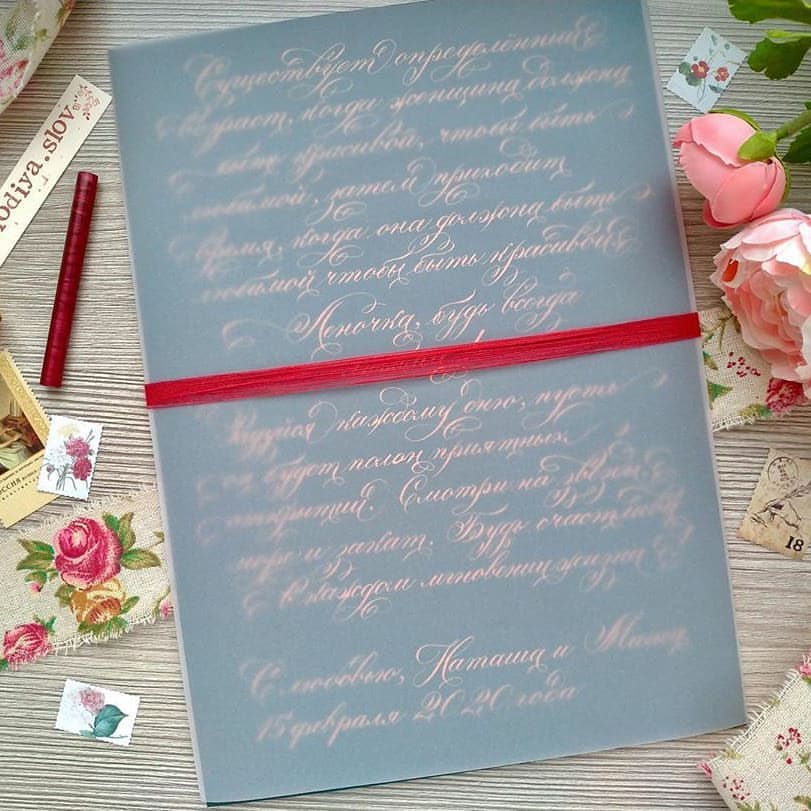 Существует определённый
возраст, когда женщина должна
быть красивой, чтобы быть
любимой, затем приходит
время, когда она должна быть
любимой чтобы быть красивой
Леночка, будь всегда
Радуйся каждому дню, пусть
он будет полон приятных
открытий. Смотри на звёзды,
море и закат. Будь счастлива
в каждом мгновении жизни
С любовью, Наташа и
15 февраля 2020 года
odiya.slov
18